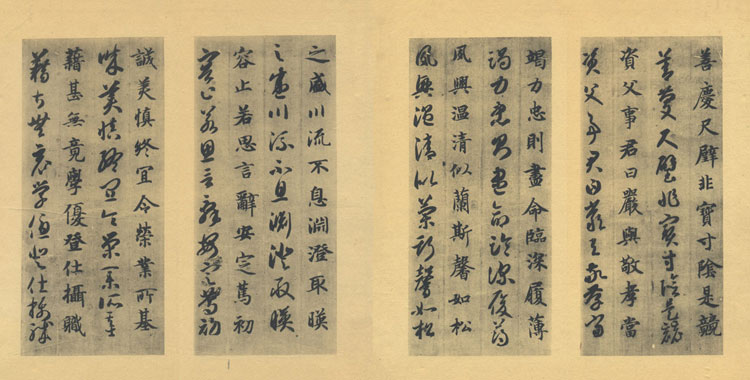 善慶尺璧非寶寸陰是競
善慶尺璧非寶寸陰是競
資父事君曰嚴與敬孝當
資父事君曰嚴與敬孝當
竭力忠則盡命臨深履薄
竭力忠則盡命臨深履薄
夙興温清似蘭斯馨如松
夙興温清似蘭斯馨如松
之盛川流不息淵澄取暎
之盛川流不息淵澄取暎
容止若思言辭安定篤初
容止若思言辭安定篤初
誠美慎終宜令榮業所基
誠美慎終宜令榮業所基
藉甚無竟學優登仕攝職
藉甚無竟學優登仕攝職